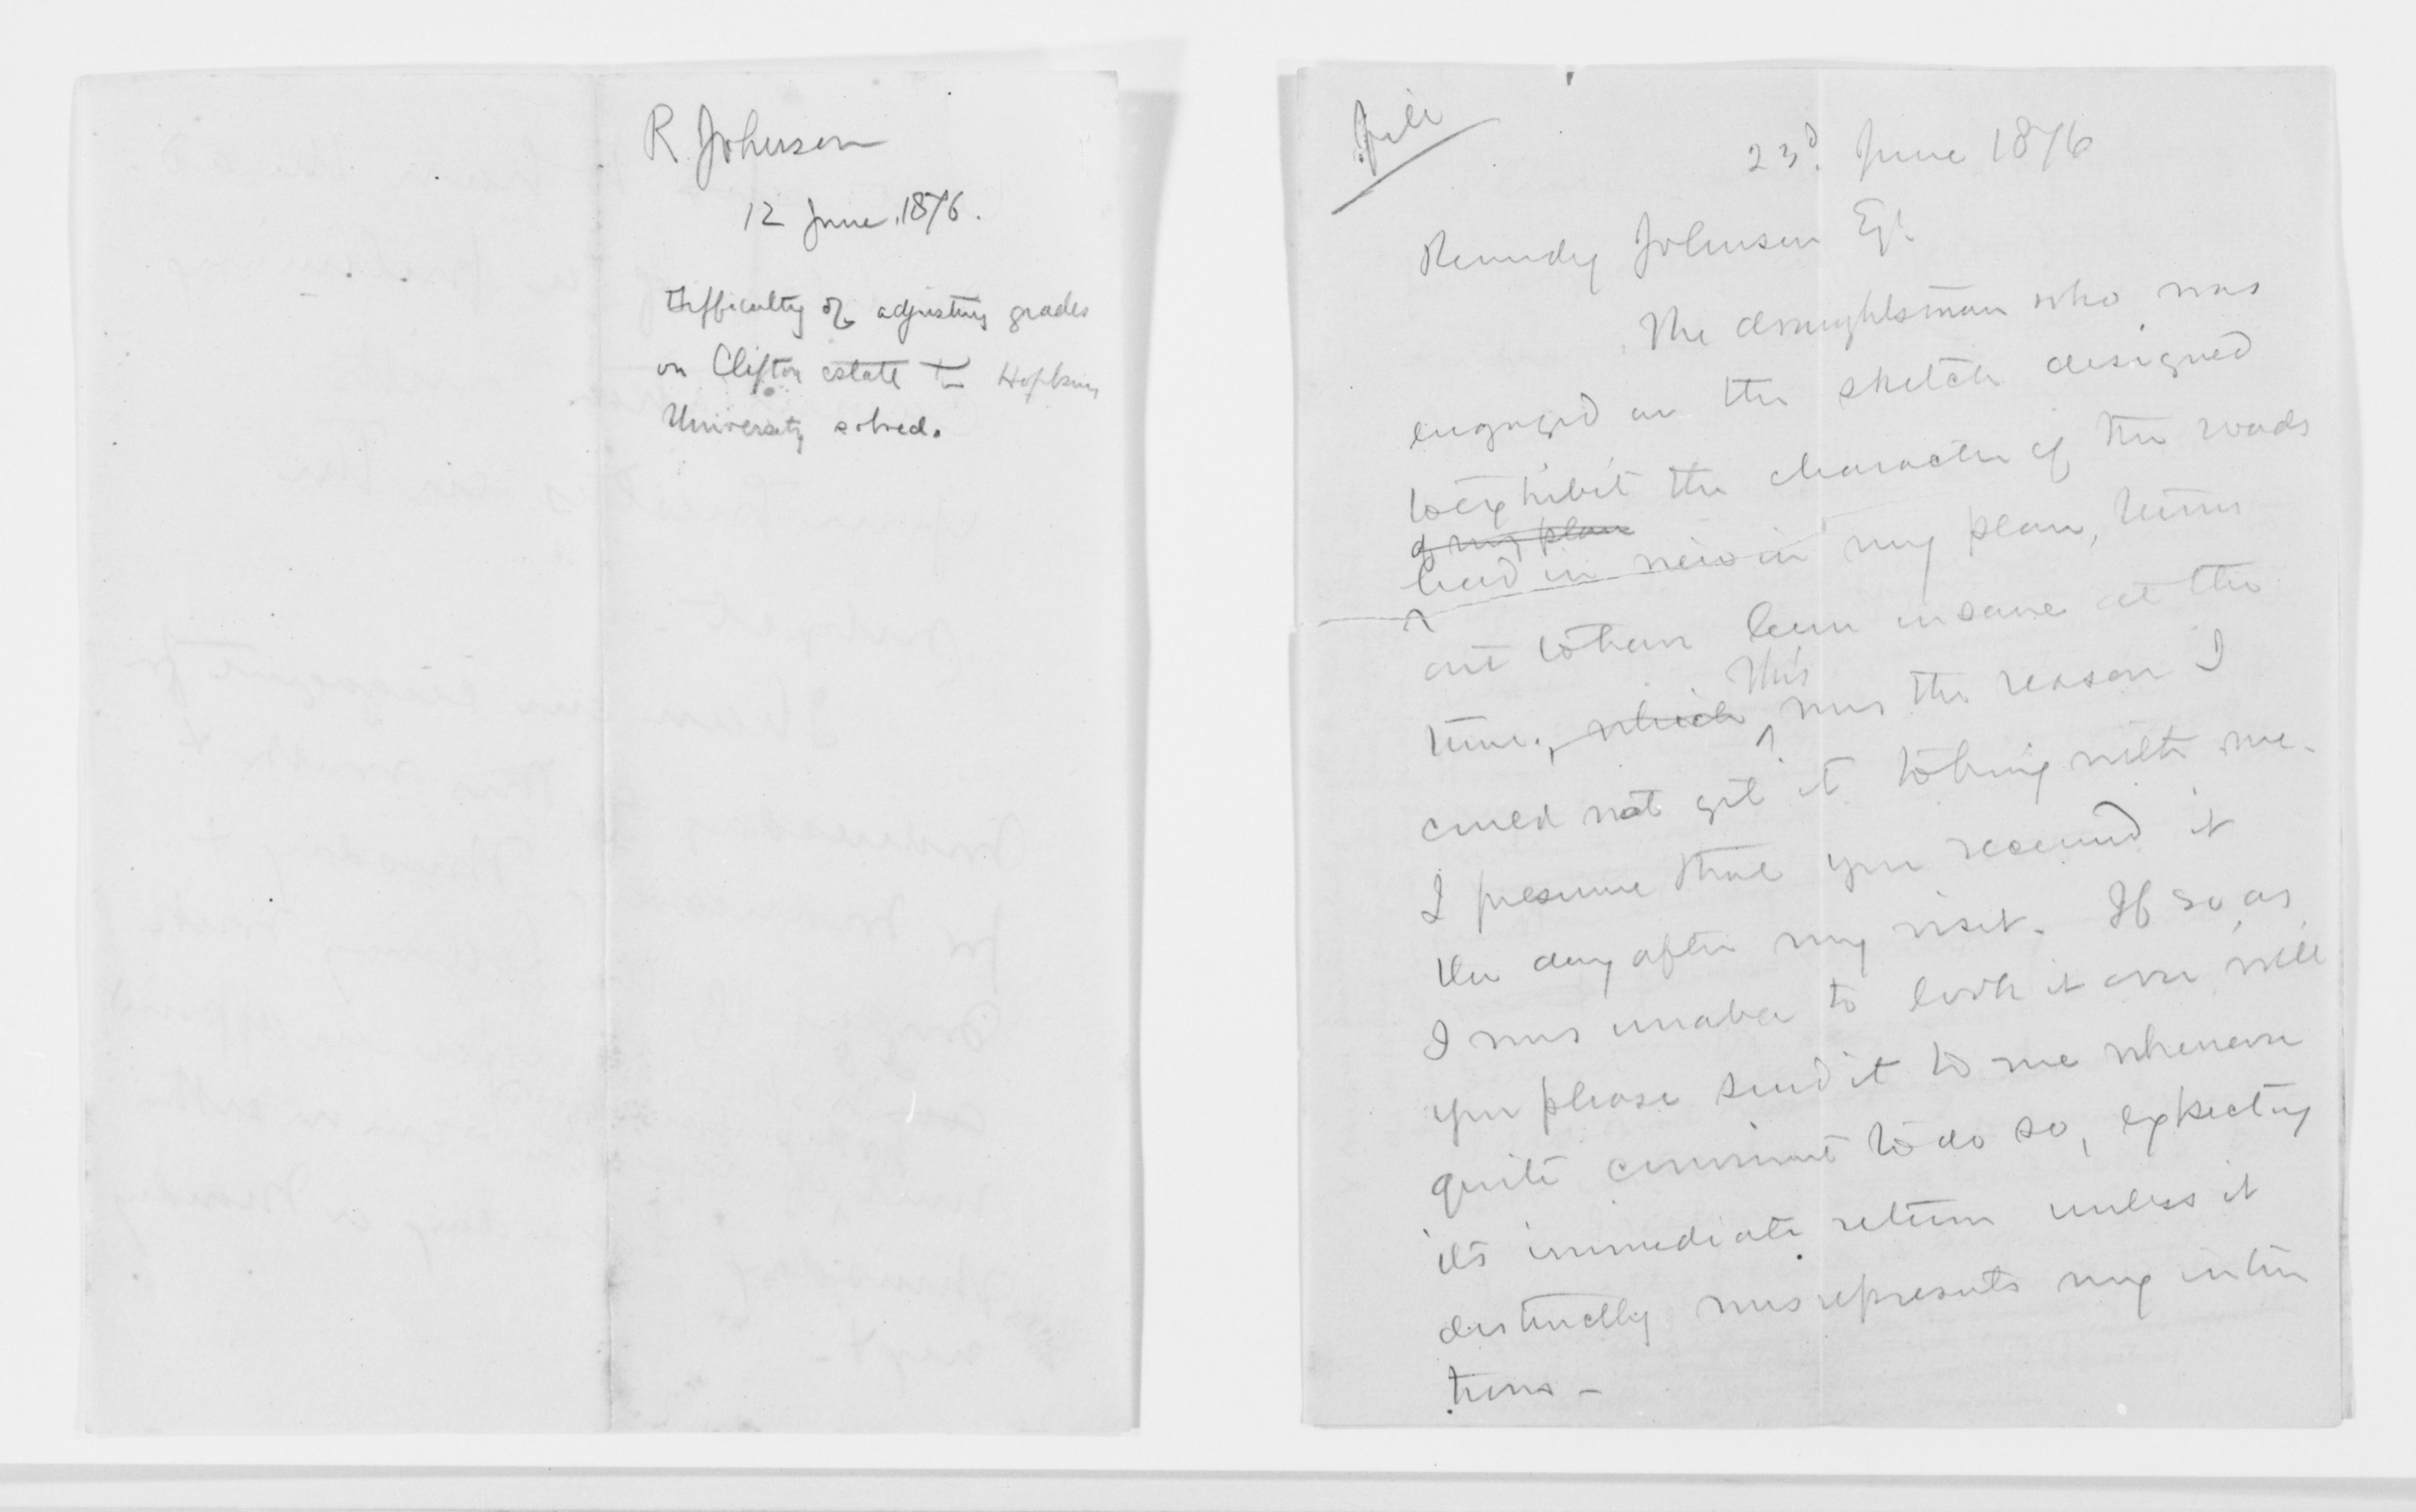 R Johnson
12 June. 1876.
Difficulty of adjusting grades
on Clifton estate to Hopkins
University solved.
File
23d. June 1876
Reverdy Johnson Esqr.
The draughtsman who was
engaged on the sketch designed
to exhibit the character of the roads
of my plan
had in view in my plan, turns
out to have been insane at the
time., which This was the reason I
could not get it to bring with me.
I presume that you received it
the day after my visit. If so, as
I was unable to look it over, will
you please send it to me whenever
quite convenient to do so, expecting
its immediate return unless it
distinctly misrepresents my inten
tions -